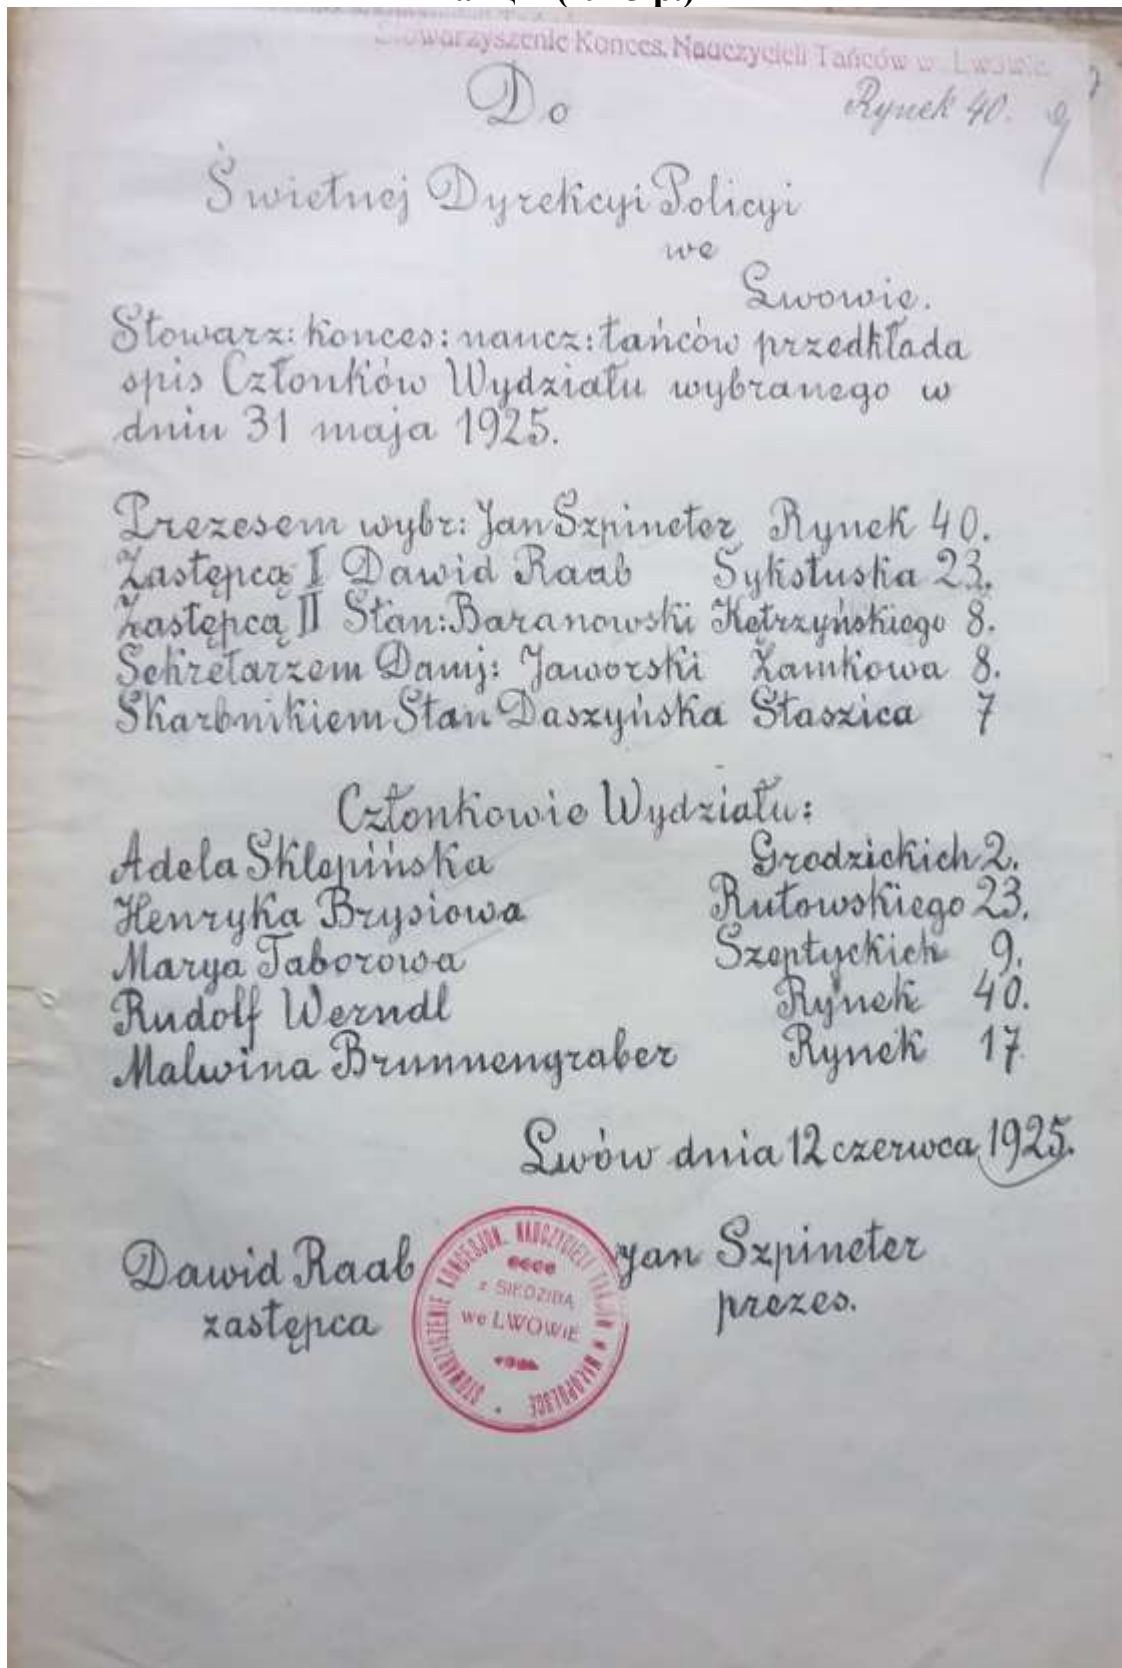 Stowarzyszenie Konces. Nauczycieli Tańców w Lwowie
Rynek 40.
Do
Świetnej Dyrekcyi Policyi
we
Lwowie.
Stowarz: konces: naucz: tańców przedkłada
spis Członków Wydziału wybranego w
dniu 31 maja 1925.
Prezesem wybr: Jan Szpineter Rynek 40.
Zastępcą I Dawid Raab Sykstuska 23.
Zastępcą II Stan: Baranowski Kętrzyńskiego 8.
Sekretarzem Damj: Jaworski Zamkowa 8.
Skarbnikiem Stan Daszyńska Staszica 7
Członkowie Wydziału:
Adela Sklepińska Grodzickich 2.
Henryka Brysiowa Rutowskiego 23.
Marya Taborowa Szeptyckich 9.
Rudolf Werndl Rynek 40.
Malwina Brunnengraber Rynek 17.
Lwów dnia 12 czerwca 1925.
Dawid Raab
zastępca
Jan Szpineter
prezes.
STOWARZYSZENIE KONCESJON. NAUCZYCIELI TAŃCÓW w MAŁOPOLSCE
z SIEDZIBĄ
we LWOWIE